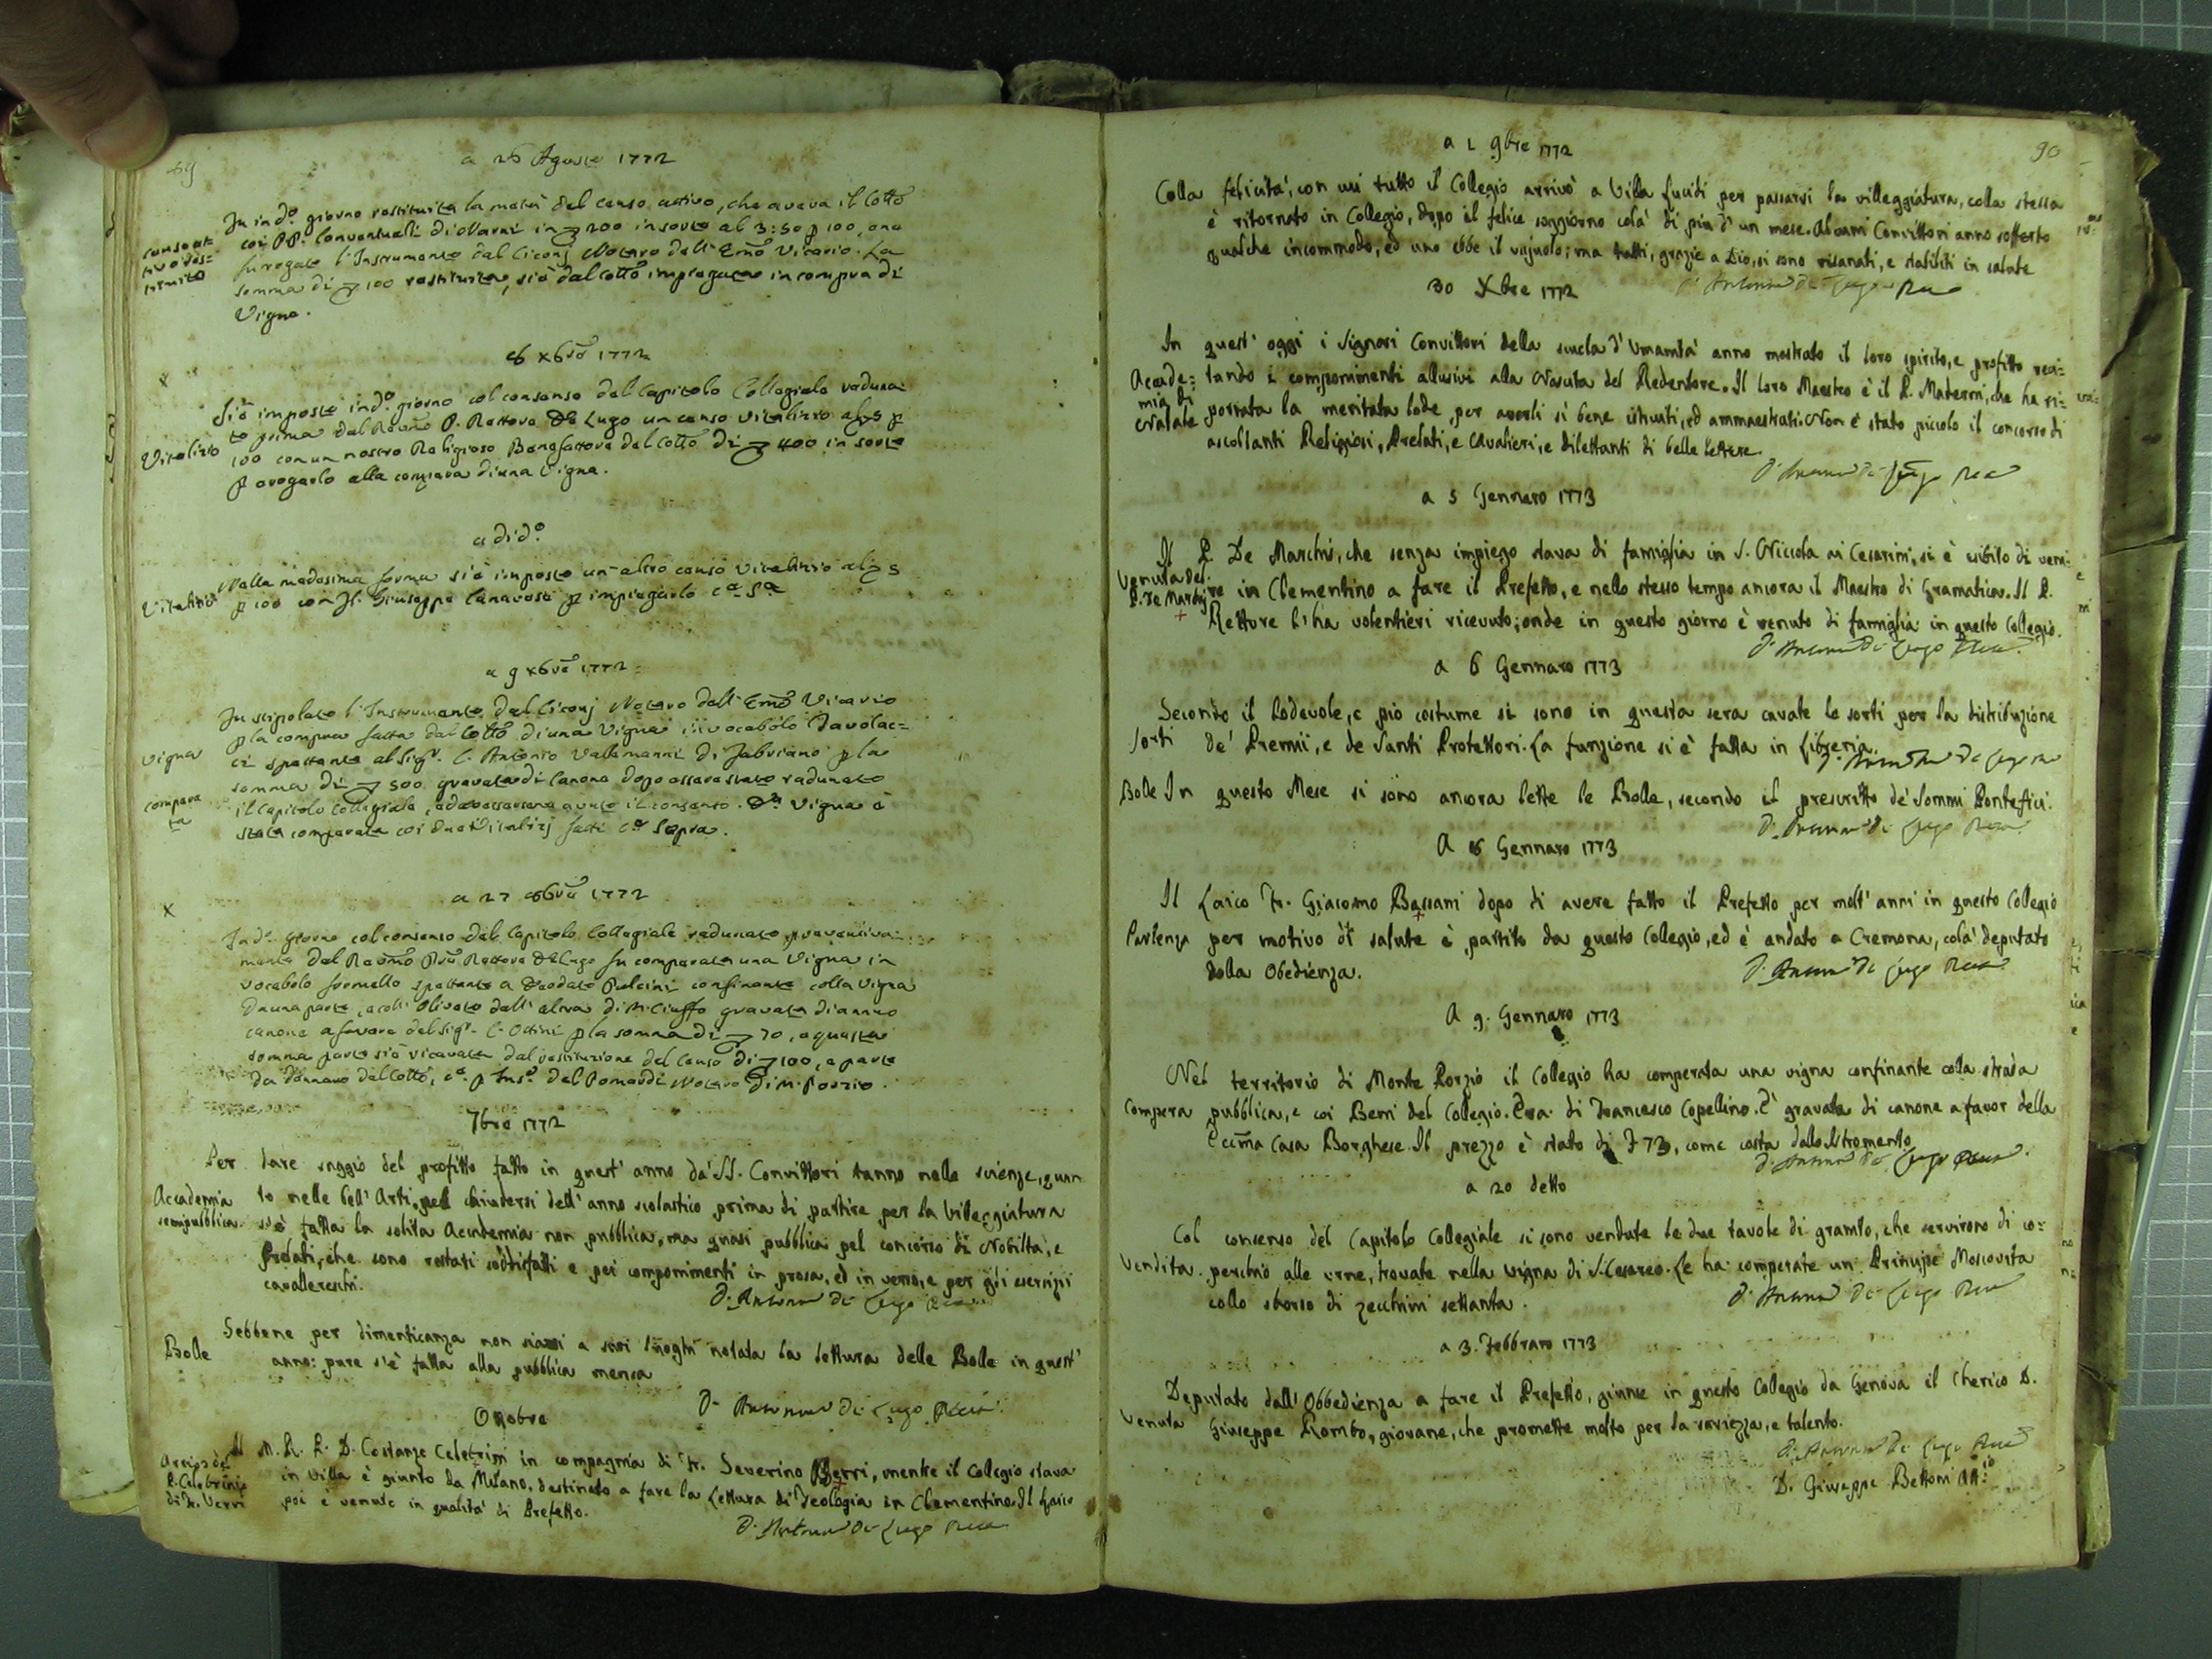 89
a 26 Agosto 1772
In indº. giorno restituita la metà del censo attivo, che aveva il Collº
coi PP. Conventuali di Narni in 200 in sorte al 3:50 p 100, one
surrogato l'Instrumento dal Ciconj Notaro dell' Emo Vicario. La
somma di 100 restituita, si è dal Collº impiegata in compra di
Vigna.
8 Xbre 1772
Si è imposto indº. giorno col consenso del Capitolo Collegiale raduna-
to prima dal Revmo P. Rettore De Lugo un censo vitalizio al 5 p
Vitalizio
100 con un nostro Religioso Benefattore del Collº di 400 in sorte
p erogarlo alla compera di una Vigna.
a di dº
Nella medesima forma si è imposto un altro censo vitalizio al 5
Vitalizio
p 100 con Giuseppe Canavosi p impiegarlo
a 9 Xbre 1772
Fu stipolato l'Instrumento dal Ciconj Notaro dell' Emo Vicario
p la compra fatta dal Collº di una Vigna in vocabolo Tavolac-
vigna
ci spettante al Sigr. C. Antonio Vallemanni di Fabriano p la
somma di 500 gravata di Canone dopo essere stato radunato
compera
ta
il Capitolo Collegiale, ed essersene avuto il consenso. Da Vigna è
stata comperata coi due Vitalizj fatti Ca Sopra.
a 27 8bre 1772
Indº. giorno col consenso del Capitolo Collegiale radunato preventiva-
mente dal Revmo Pre Rettore De Lugo fu comperata una Vigna in
vocabolo fornello spettante a Deodato Pulcini confinante colla vigna
da una parte, e coll' Oliveto dall' altra di M. Ciuffo gravata di annuo
canone a favore del Sigr. C. Ottini p la somma di 70, e questa
somma parte si è ricavata dal restituzione del Censo di 100, e parte
da dennaro del Collº, Notaro di M. Porzio.
7bre 1772
Per dare saggio del profitto fatto in quest' anno da' SS. Convittori tanno nelle scienze, quan
Accademia
semipubblica.
to nelle bell' Arti, nel chiudersi dell' anno scolastico prima di partire per la Villeggiatura
s'è fatta la solita Accademia non pubblica, ma quasi pubblica pel concorso di Nobiltà, e
Prelati, che sono restati soddisfatti e pei componimenti in prosa, ed in verso, e per gli esercizi
cavallereschi.
D. Antonio De Lugo Rett
Sebbene per dimenticanza non siasi a suoi luoghi notata la lettura delle Bolle in quest'
Bolle
anno: pure s'è fatta alla pubblica mensa
D. Antonio De Lugo Rett.
Ottobre
Arrivo del
P. Celebrinj e
di Fr. Verri
Il M. R. P. D. Costanzo Celebrini in compagnia di Fr. Severino Berri, mentre il Collegio stava
in Villa è giunto da Milano, destinato a fare la Lettura di Teologia in Clementino. Il Laico
poi è venuto in qualità di Prefetto.
D. Antonio De Lugo Rett
90
a 1 9bre 1772
Colla felicità, con cui tutto il Collegio arrivò a Villa Lucidi per passarvi la villeggiatura, colla stessa
è ritornato in Collegio, dopo il felice soggiorno colà di più d'un mese. Alcuni Convittori anno sofferto
qualche incommodo, ed uno ebbe il vajuolo; ma tutti, grazie a Dio, si sono risanati, e stabiliti in salute
D. Antonio De Lugo Rett
30 Xbre 1772
In quest' oggi i Signori Convittori della scuola d'Umanità anno mostrato il loro spirito, e profitto reci-
Accade-
mia di
Natale
tando i componimenti allusivi alla Nascita del Redentore. Il loro Maestro è il P. Materni, che ha ri-
portata la meritata lode, per averli sì bene istruiti, ed ammaestrati. Non è stato piccolo il concorso di
ascoltanti Religiosi, Prelati, e Cavalieri, e dilettanti di belle lettere.
D. Antonio De Lugo Rett
a 5 Gennaro 1773
Il P. De Marchis, che senza impiego stava di famiglia in S. Niccola ai Cesarini, si è esibito di veni-
Venuta del
P. De Marchis
re in Clementino a fare il Prefetto, e nello stesso tempo ancora il Maestro di Gramatica. Il P.
Rettore l'ha volentieri ricevuto; onde in questo giorno è venuto di famiglia in questo Collegio.
D. Antonio De Lugo Rett
a 6 Gennaro 1773
Secondo il lodevole, e pio costume si sono in questa sera cavate le sorti per la distribuzione
Sorti
de' Premii, e de Santi Protettori. La funzione si è fatta in Libreria.
D. Antonio De Lugo Rett
Bolle In questo Mese si sono ancora lette le Bolle, secondo il prescritto de' Sommi Pontefici.
D. Antonio De Lugo Rett
A 8 Gennaro 1773
Il Laico Fr. Giacomo Bassani dopo di avere fatto il Prefetto per molt' anni in questo Collegio
Partenza per motivo di salute è partito da questo Collegio, ed è andato a Cremona, colà deputato
dalla Obedienza.
D. Antonio De Lugo Rett
A 9. Gennaro 1773
Nel territorio di Monte Porzio il Collegio ha comperata una vigna confinante colla strada
Compera pubblica, e coi Beni del Collegio. Era di Francesco Copellino. È gravata di canone a favor della
Eccma Casa Borghese. Il prezzo è stato di 73, come costa dallo Istromento
D. Antonio De Lugo Rett.
a 20 detto
Col consenso del Capitolo Collegiale si sono vendute le due tavole di granito, che servirono di co-
Vendita perchio alle urne, trovate nella vigna di S. Cesareo. Le ha comperate un Principe Moscovita
collo sborso di zecchini settanta.
D. Antonio De Lugo Rett
a 3. Febbraro 1773
Deputato dall' Obbedienza a fare il Prefetto, giunse in questo Collegio da Genova il Cherico D.
Venuta Giuseppe Rombo, giovane, che promette molto per la saviezza, e talento.
D. Antonio De Lugo Rett
D. Giuseppe Bettoni Attrio